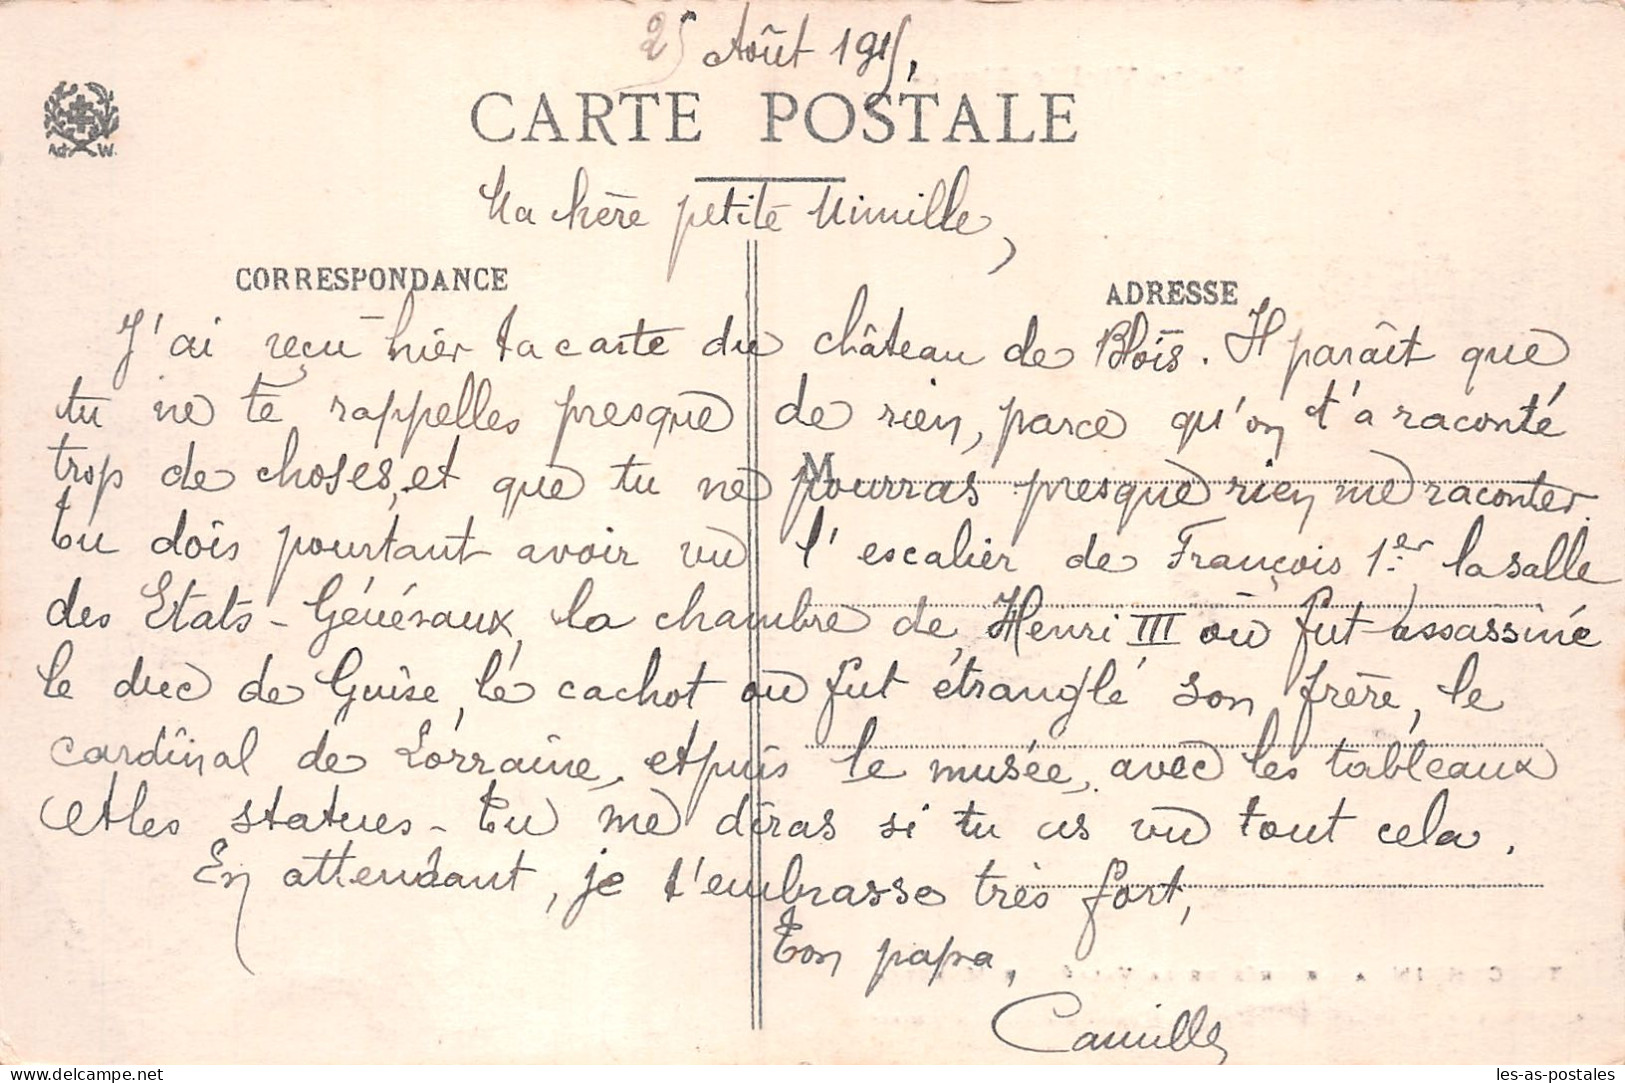 25 Août 1915,
CARTE POSTALE
Ad. W.
Ma chère petite Mimille,
CORRESPONDANCE
ADRESSE
J'ai reçu hier ta carte du château de Blois. Il paraît que
tu ne te rappelles presque de rien, parce qu'on t'a raconté
trop de choses, et que tu ne pourras presque rien me raconter.
M
Tu dois pourtant avoir vu l'escalier de François 1er, la salle
des Etats-Généraux, la chambre de Henri III où fut assassiné
le duc de Guise, le cachot où fut étranglé son frère, le
cardinal de Lorraine, et puis le musée, avec les tableaux
et les statues - Tu me diras si tu as vu tout cela.
En attendant, je t'embrasse très fort,
Ton papa,
Camille
delcampe.net
les-as-postales